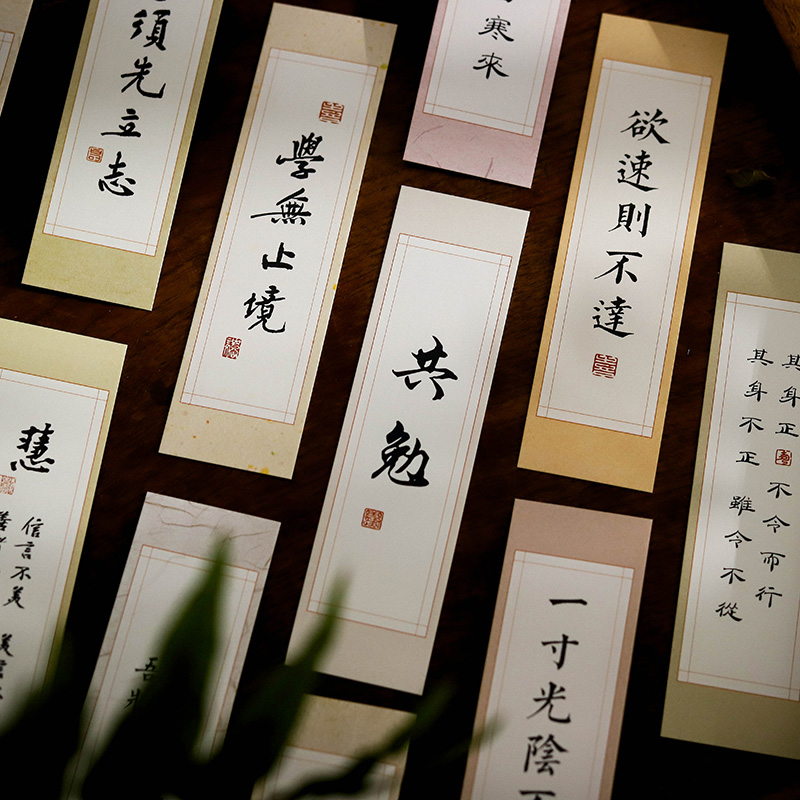 須先立志
學無止境
寒來
欲速則不達
共勉
其身正 不令而行
其身不正 雖令不從
慧
信言不美
吾
一寸光陰不